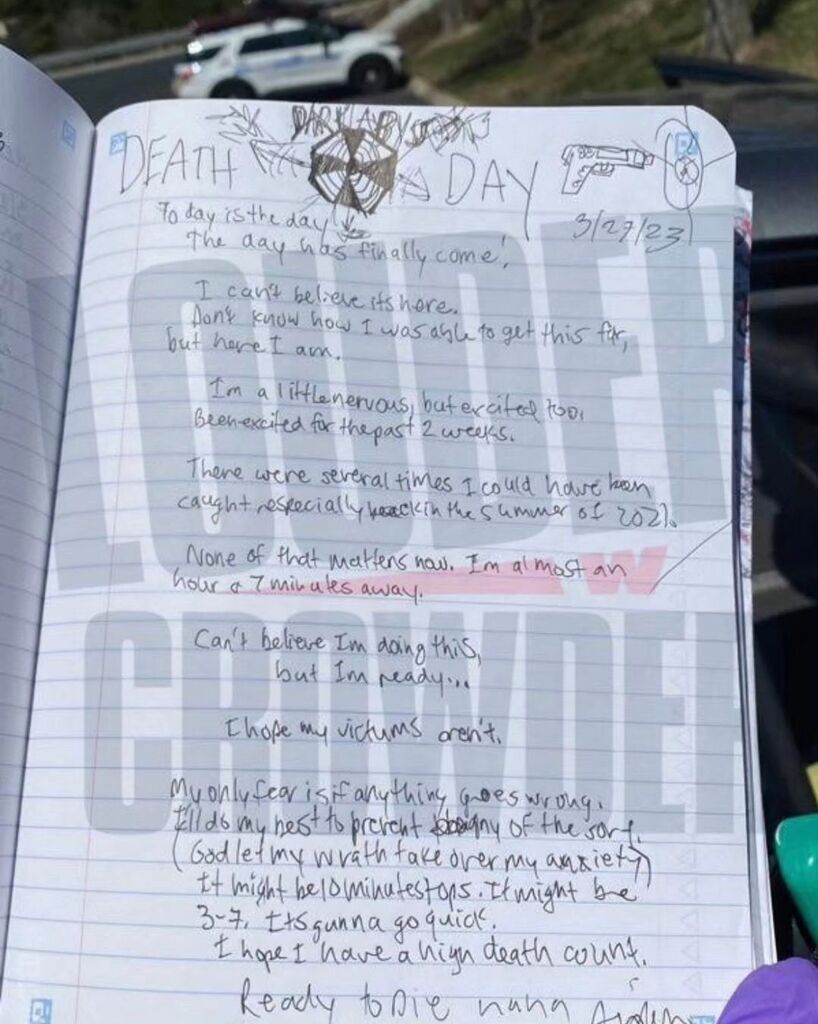 DEATH DAY
3/27/23
Today is the day
The day has finally come!
I can't believe its here.
Don't know how I was able to get this far,
but here I am.
Im a little nervous, but excited too.
Been excited for the past 2 weeks.
There were several times I could have been
caught, especially back in the summer of 2021.
None of that matters now. Im almost an
hour & 7 minutes away.
Can't believe Im doing this,
but Im ready...
I hope my victums aren't.
My only fear is if anything goes wrong.
I'll do my best to prevent any of the sort.
(God let my wrath take over my anxiety)
It might be 10 minutes tops. It might be
3-7. Its gunna go quick.
I hope I have a high death count.
Ready to Die
LOUDER
W
CROWDER